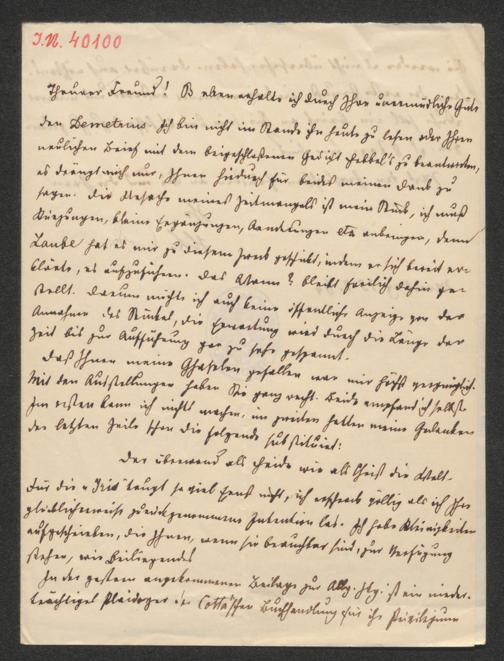 I.N. 40100
Theurer Freund! So eben erhalte ich durch Ihre unermüdliche Güte
den Demetrius. Ich bin nicht im Stande ihn heute zu lesen oder Ihren
neulichen Brief mit dem beigeschlossenen Gedicht Hebbel's zu beantworten,
es drängt mich nur, Ihnen hiedurch für beides meinen Dank zu
sagen. Die Ursache meines Zeitmangels ist mein Stück, ich muß
Kürzungen, kleine Ergänzungen, Aenderungen etc anbringen, denn
Laube hat es mir zu diesem Zweck geschickt, indem er sich bereit er-
klärte, es aufzuführen. Das Wann? bleibt freilich dahin ge-
stellt. Darum möchte ich auch keine öffentliche Anzeige von der
Annahme des Stückes, die Erwartung wird durch die Länge der
Zeit bis zur Aufführung gar zu sehr gespannt.
Daß Ihnen meine Ghaselen gefallen war mir höchst
Mit den Ausstellungen haben Sie ganz recht. Beide empfand ich selbst.
Im ersten kann ich nichts machen, im zweiten hatten meine Gedanken
der letzten Zeile schon die folgende substituirt:
Der überwand als Heide wie als Christ die Welt.
Für die "Iris" taugt so viel Ernst nicht, ich erschrak völlig als ich Ihre
glücklicherweise zurückgenommene Intention las. Ich habe Kleinigkeiten
aufgeschrieben, die Ihnen, wenn sie brauchbar sind, zur Verfügung
stehen, wie Beiliegendes
In der gestern angekommenen Beilage zur Allg. Ztg. ist ein nieder-
trächtiges Plaidoyer der Cotta'schen Buchhandlung für ihr Privilegium